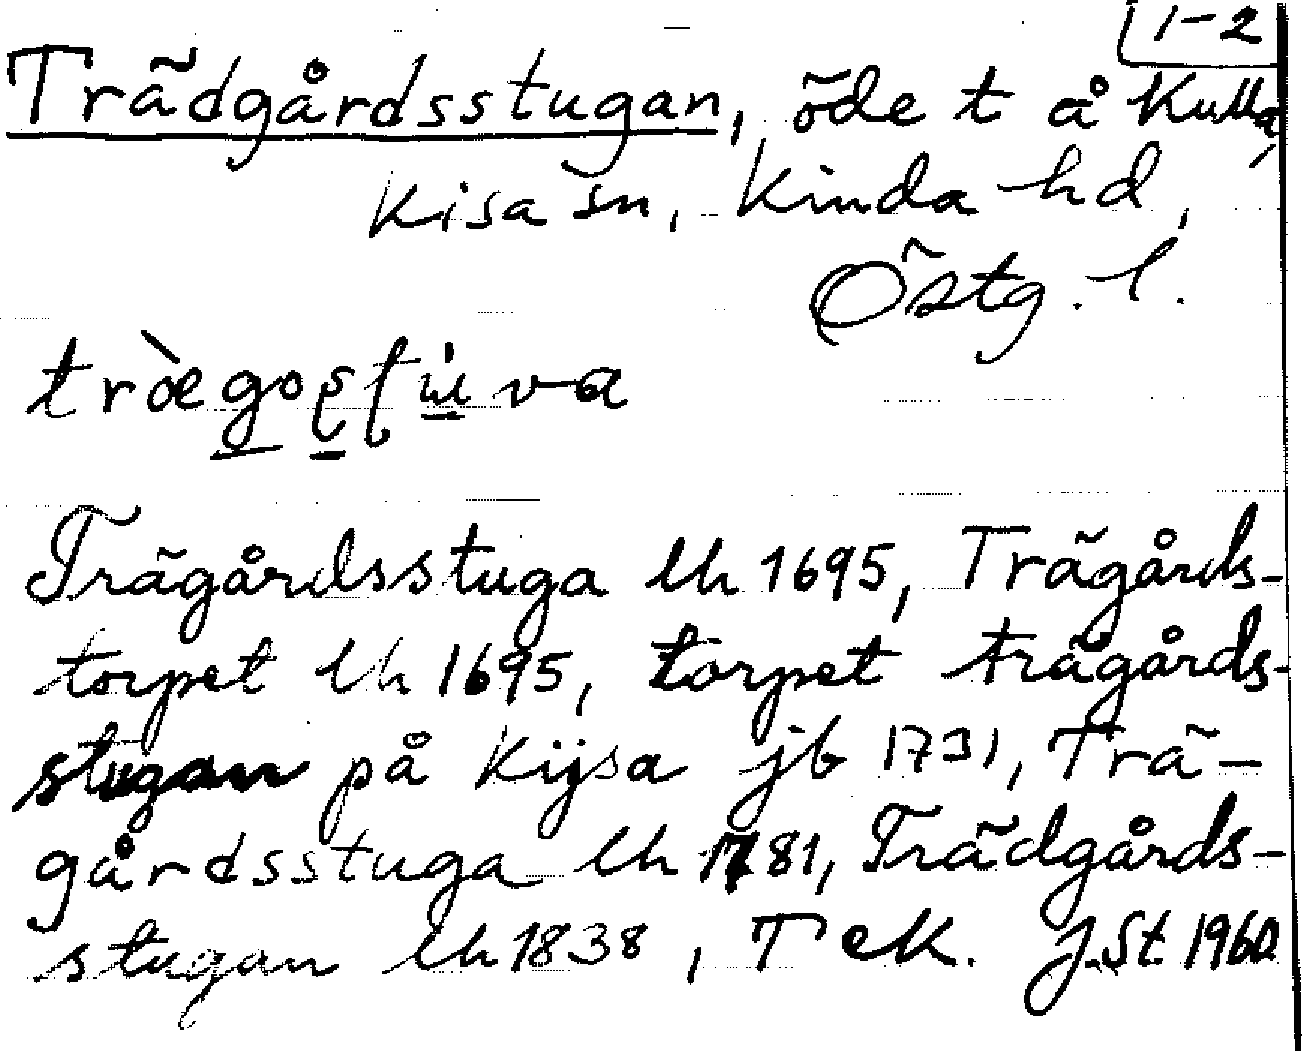 1-2
Trädgårdsstugan, öde t å Kulla,
Kisa sn, Kinda hd,
Östg. l.
Trägårdsstuga lh 1695, Trägårds-
torpet lh 1695, torpet trägårds-
stugan på Kijsa jb 1731, Trä-
gårdsstuga lh 1781, Trädgårds-
stugan lh 1838, T eK. J.St 1960